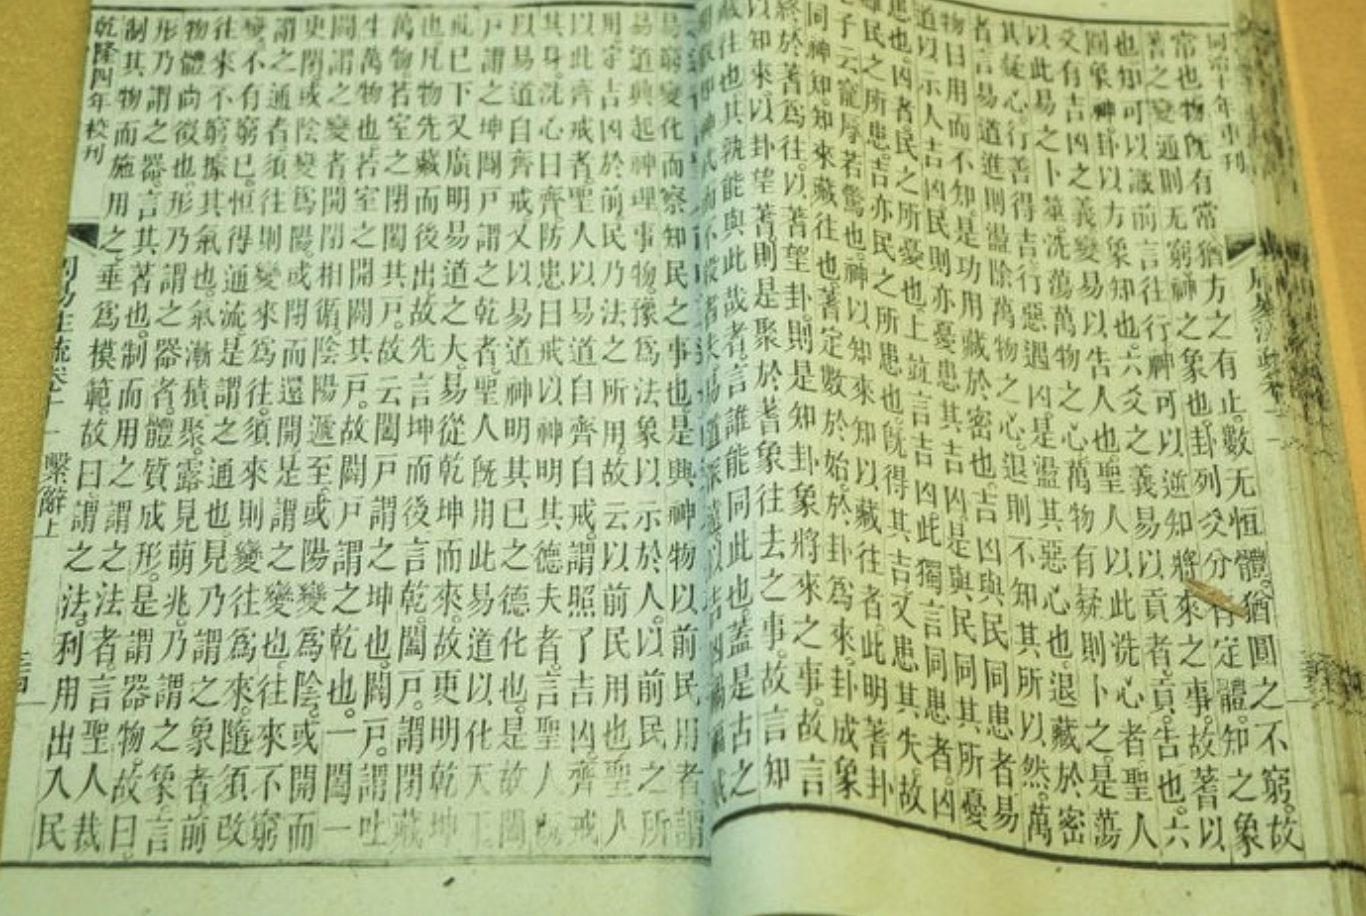 同治十年重刊
常也。物既有常猶方之有止。數无恒體。猶圓之不窮。故
蓍之變通則无窮神之象也。卦列爻分有定體。知之象
也。知可以識前言往行。神可以逆知將來之事。故蓍以
圓象神。卦以方象知也。六爻之義易以貢者。貢。告也。六
爻有吉凶之義。變易以告人也。聖人以此洗心者。聖人
以此易之卜筮。洗蕩萬物之心。萬物有疑則卜之。是蕩
其疑心。行善得吉。行惡遇凶。是盪其惡心也。退藏於密
者。言易道進則盪除萬物之心。退則不知其所以然。萬
物日用而不知。是功用藏於密也。吉凶與民同患者。易
道以示人吉凶。民則亦憂患其吉凶。是與民同其所憂
患也。凶者民之所憂也。上竝言吉凶。此獨言同患者。凶
雖民之所患。吉亦民之所患也。既得其吉。又患其失。故
老子云寵辱若驚也。神以知來知以藏往者。此明蓍卦
同神知。知來藏往也。蓍定數於始。於卦爲來。卦成象
終。於蓍爲往。以蓍望卦。則是知卦象將來之事。故言
以知來。以卦望蓍。則是聚於蓍象往去之事。故言知
藏往也。其孰能與此哉者。言誰能同此也。蓋是古之
易窮變化而察知民之事也。是興神物以前民用者。謂
易道興起神理事物。豫爲法象以示於人。以前民之所
用。定吉凶於前。民乃法之所用。故云以前民用也。聖人
以此齊戒者。聖人以易道自齊自戒。謂照了吉凶。齊戒
其身。洗心曰齊。防患曰戒。以神明其德夫者。言聖人既
以易道自齊戒。又以易道神明其已之德化也。是故闔
戶謂之坤闢戶謂之乾者。聖人既用此易道以化天下
此已下又廣明易道之大。易從乾坤而來。故更明乾坤
也。凡物先藏而後出。故先言坤而後言乾。闔戶。謂閉藏
萬物。若室之閉闔其戶。故云闔戶謂之坤也。闢戶。謂吐
生萬物也。若室之開闢其戶。故闢戶謂之乾也。一闔一
闢謂之變者。開閉相循。陰陽遞至。或陽變爲陰。或開而
更閉。或陰變爲陽。或閉而還開。是謂之變也。往來不窮
謂之通者。須往則變來爲往。須來則變往爲來。隨須改
變。不有窮已。恒得通流。是謂之通也。見乃謂之象者。前
往來不窮。據其氣也。氣漸積聚。露見萌兆。乃謂之象。言
物體尚微也。形乃謂之器者。體質成形。是謂器物。故曰
形乃謂之器。言其著也。制而用之謂之法者。言聖人裁
制其物而施用之。垂爲模範。故曰謂之法。利用出入民
乾隆四年校刊
周易注疏卷十一 繫辭上